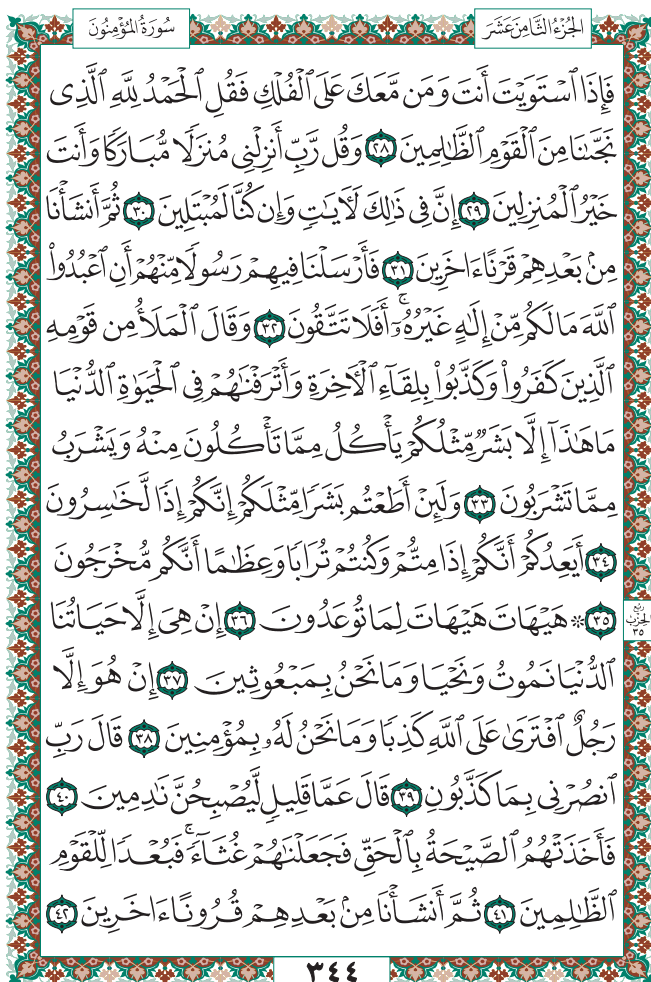 الجُزْءُ الثَّامِنَ عَشَرَ
سُورَةُ المُؤْمِنُونَ
فَإِذَا ٱسْتَوَيْتَ أَنتَ وَمَن مَّعَكَ عَلَى ٱلْفُلْكِ فَقُلِ ٱلْحَمْدُ لِلَّهِ ٱلَّذِى
نَجَّىٰنَا مِنَ ٱلْقَوْمِ ٱلظَّٰلِمِينَ ٢٨ وَقُل رَّبِّ أَنزِلْنِى مُنزَلًا مُّبَارَكًا وَأَنتَ
خَيْرُ ٱلْمُنزِلِينَ ٢٩ إِنَّ فِى ذَٰلِكَ لَءَايَٰتٍ وَإِن كُنَّا لَمُبْتَلِينَ ٣٠ ثُمَّ أَنشَأْنَا
مِنۢ بَعْدِهِمْ قَرْنًا ءَاخَرِينَ ٣١ فَأَرْسَلْنَا فِيهِمْ رَسُولًا مِّنْهُمْ أَنِ ٱعْبُدُوا۟
ٱللَّهَ مَا لَكُم مِّنْ إِلَٰهٍ غَيْرُهُۥٓ ۚ أَفَلَا تَتَّقُونَ ٣٢ وَقَالَ ٱلْمَلَأُ مِن قَوْمِهِ
ٱلَّذِينَ كَفَرُوا۟ وَكَذَّبُوا۟ بِلِقَآءِ ٱلْءَاخِرَةِ وَأَتْرَفْنَٰهُمْ فِى ٱلْحَيَوٰةِ ٱلدُّنْيَا
مَا هَٰذَآ إِلَّا بَشَرٌ مِّثْلُكُمْ يَأْكُلُ مِمَّا تَأْكُلُونَ مِنْهُ وَيَشْرَبُ
مِمَّا تَشْرَبُونَ ٣٣ وَلَئِنْ أَطَعْتُم بَشَرًا مِّثْلَكُمْ إِنَّكُمْ إِذًا لَّخَٰسِرُونَ
٣٤ أَيَعِدُكُمْ أَنَّكُمْ إِذَا مِتُّمْ وَكُنتُمْ تُرَابًا وَعِظَٰمًا أَنَّكُم مُّخْرَجُونَ
٣٥ ۞ هَيْهَاتَ هَيْهَاتَ لِمَا تُوعَدُونَ ٣٦ إِنْ هِىَ إِلَّا حَيَاتُنَا
رُبْعُ الحِزْبِ ٣٥
ٱلدُّنْيَا نَمُوتُ وَنَحْيَا وَمَا نَحْنُ بِمَبْعُوثِينَ ٣٧ إِنْ هُوَ إِلَّا
رَجُلٌ ٱفْتَرَىٰ عَلَى ٱللَّهِ كَذِبًا وَمَا نَحْنُ لَهُۥ بِمُؤْمِنِينَ ٣٨ قَالَ رَبِّ
ٱنصُرْنِى بِمَا كَذَّبُونِ ٣٩ قَالَ عَمَّا قَلِيلٍ لَّيُصْبِحُنَّ نَٰدِمِينَ ٤٠
فَأَخَذَتْهُمُ ٱلصَّيْحَةُ بِٱلْحَقِّ فَجَعَلْنَٰهُمْ غُثَآءً ۚ فَبُعْدًا لِّلْقَوْمِ
ٱلظَّٰلِمِينَ ٤١ ثُمَّ أَنشَأْنَا مِنۢ بَعْدِهِمْ قُرُونًا ءَاخَرِينَ ٤٢
٣٤٤